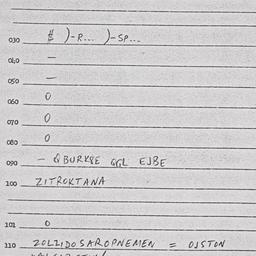 030 # )-R... )-SP...
040 —
050 —
060 0
070 0
080 0
090 — QBURKSE GGL EJBE
100 ZITROKTANA
101 0
110 ZOLZIDOSAROPNEMEN = OJSTON